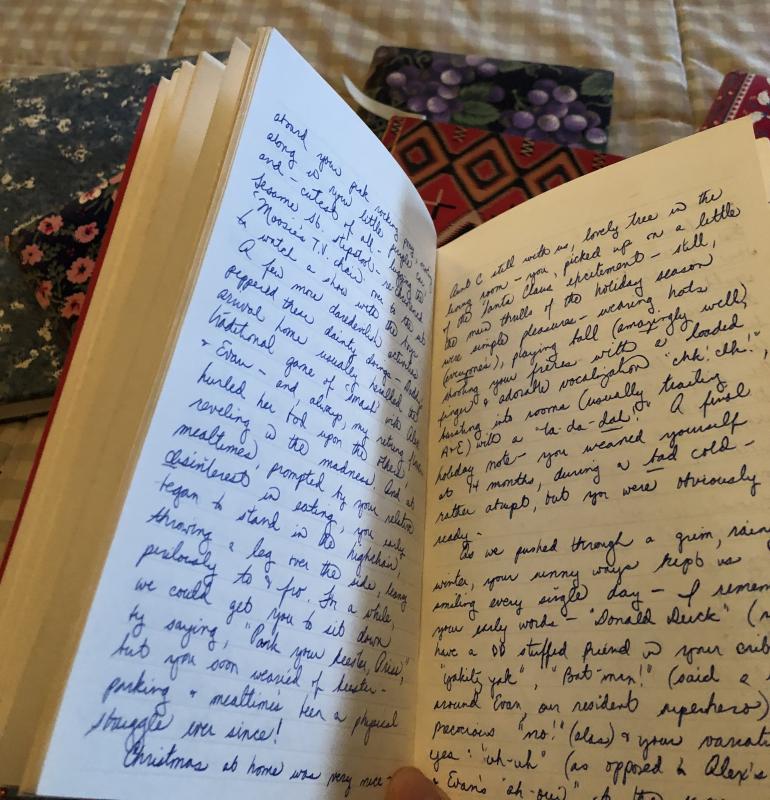 around your pink rocking pony, riding
along in your little people car,
and - cutest of all - lugging the
Sesame St. stepstool - rechristened
"Moosie's T.V. chair" over to the set
to watch a show with the boys.
A few more daredevilish activities
peppered these dainty doings - Daddy's
arrival home usually heralded the
traditional game of "smash" with Alex
& Evan - and, always, my
hurled her bod upon the others,
reveling in the madness. And at
mealtimes, prompted by your relative
disinterest in eating, you early
began to stand in the highchair,
throwing a leg over the side, leaning
perilously to & fro. For a while,
we could get you to sit down
by saying, "Park your keester,
but you soon wearied of keester-
parking & mealtime's been a physical
struggle ever since!
Christmas at home was very nice -
Aunt C still with us, lovely tree in the
living room - you, picked up on a little
of the Santa Claus excitement - still,
the main thrills of the holiday season
were simple pleasures - wearing hats
(everyone's), playing ball (amazingly well),
shooting your frères with a loaded
finger & adorable vocalization "chk! clh!",
bursting into rooms (usually trailing
A+E) with a "ta-da-dah!" A final
holiday note - you weaned yourself
at 14 months, during a bad cold -
rather abrupt, but you were obviously
ready.
As we pushed through a grim, rainy
winter, your sunny ways kept us
smiling every single day - I remem
your early words - "Donald Duck" (
have a DD stuffed friend in your crib
"yakity yak", "Bat-man!" (said a
around Evan, our resident superhero)
precocious "no!" (alas) & your variati
yes: "uh-uh" (as opposed to Alex's
& Evan's "oh-oui"